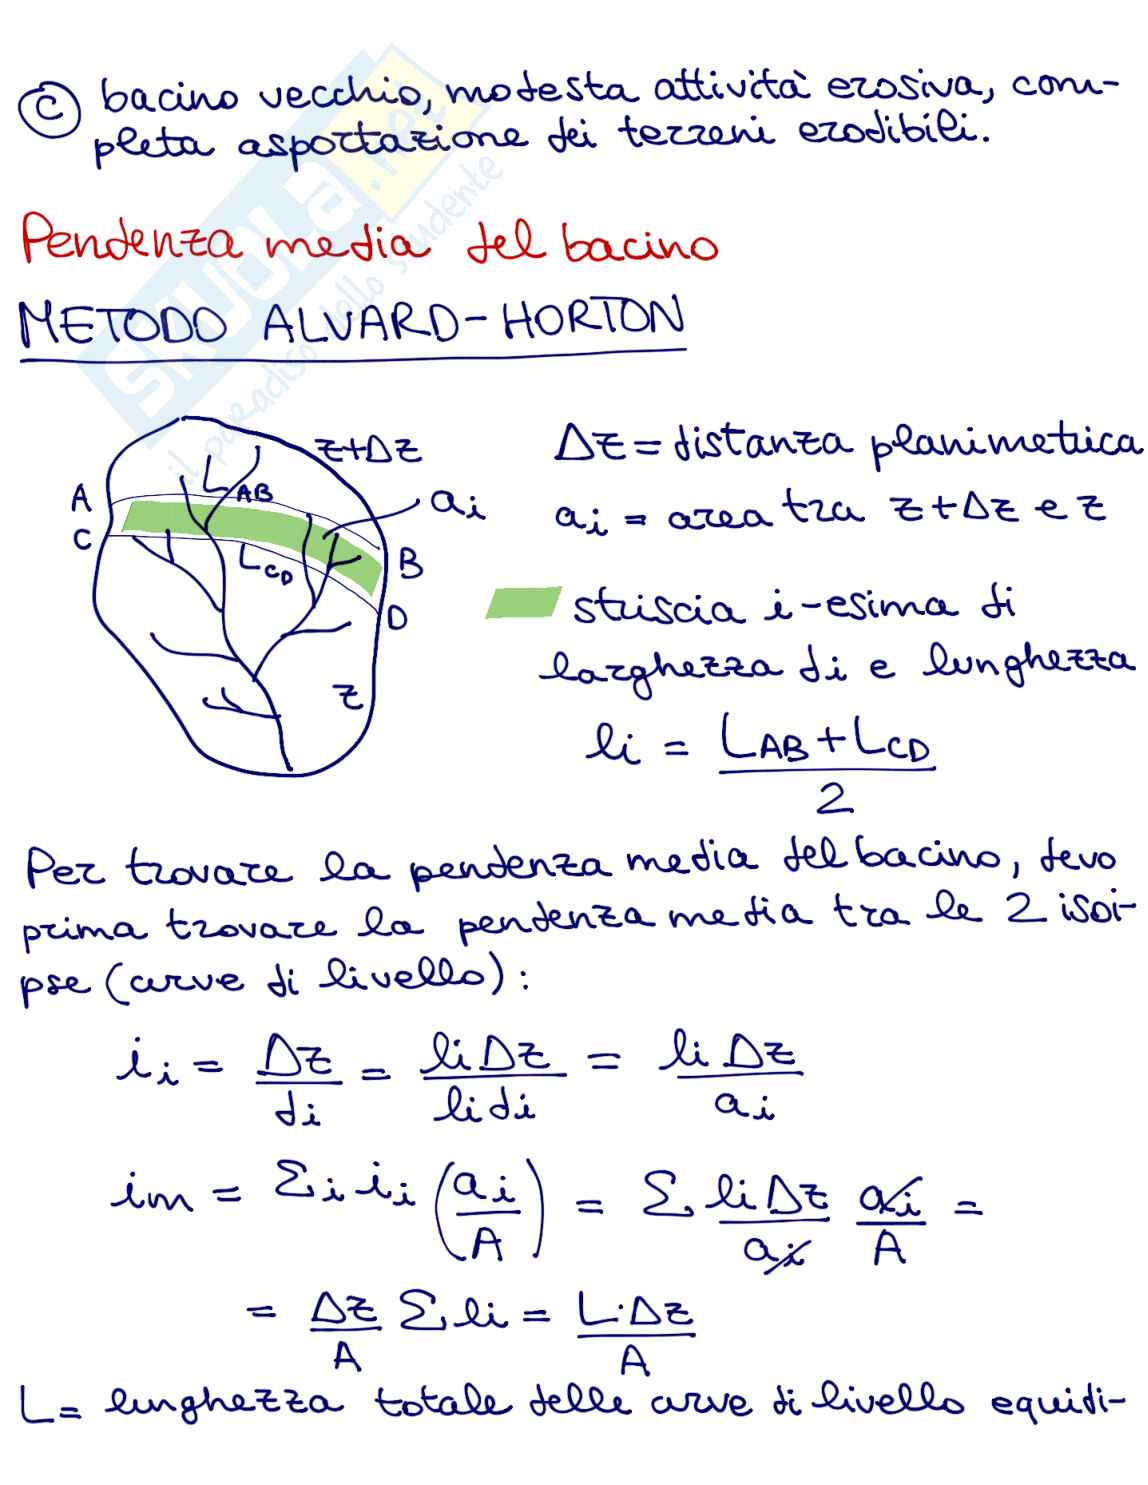 ⓒ bacino vecchio, modesta attività erosiva, com-
pleta asportazione dei terreni erodibili.
SKUOLA.net
il paradiso dello studente
Pendenza media del bacino
METODO ALVARD-HORTON
z+Δz
Δz = distanza planimetrica
A
L_AB
a_i
a_i = area tra z+Δz e z
C
L_CD
B
D
striscia i-esima di
larghezza di e lunghezza
z
li = (L_AB + L_CD) / 2
Per trovare la pendenza media del bacino, devo
prima trovare la pendenza media tra le 2 isoi-
pse (curve di livello):
i_i = Δz / di = li Δz / li di = li Δz / a_i
im = Σ_i i_i (a_i / A) = Σ li Δz / a_i a_i / A =
= Δz / A Σ li = L·Δz / A
L = lunghezza totale delle curve di livello equidi-